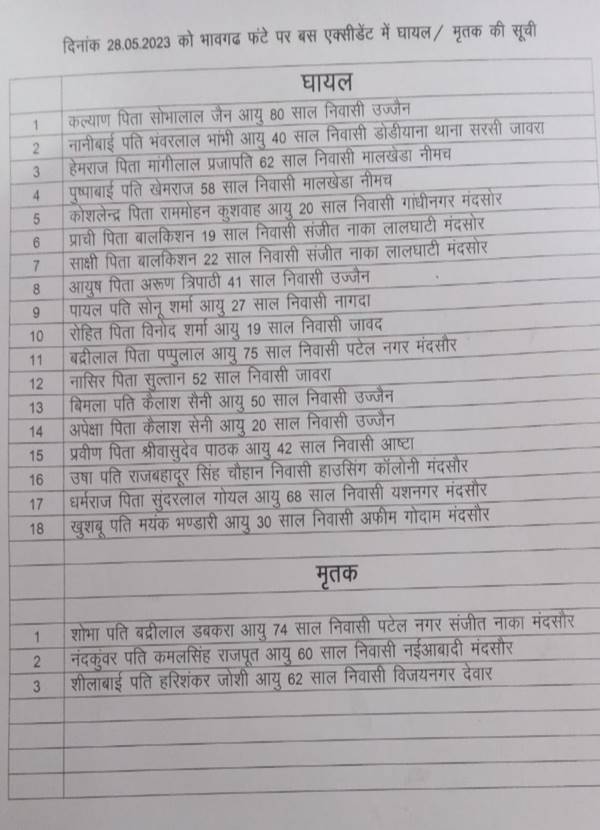 दिनांक 28.05.2023 को भावगढ फंटे पर बस एक्सीडेंट में घायल/ मृतक की सूची
घायल
1 कल्याण पिता सोभालाल जैन आयु 80 साल निवासी उज्जैन
2 नानीबाई पति भंवरलाल भांभी आयु 40 साल निवासी डोडीयाना थाना सरसी जावरा
3 हेमराज पिता मांगीलाल प्रजापति 62 साल निवासी मालखेडा नीमच
4 पुष्पाबाई पति खेमराज 58 साल निवासी मालखेडा नीमच
5 कोशलेन्द्र पिता राममोहन कुशवाह आयु 20 साल निवासी गांधीनगर मंदसोर
6 प्राची पिता बालकिशन 19 साल निवासी संजीत नाका लालघाटी मंदसोर
7 साक्षी पिता बालकिशन 22 साल निवासी संजीत नाका लालघाटी मंदसोर
8 आयुष पिता अरूण त्रिपाठी 41 साल निवासी उज्जैन
9 पायल पति सोनू शर्मा आयु 27 साल निवासी नागदा
10 रोहित पिता विनोद शर्मा आयु 19 साल निवासी जावद
11 बद्रीलाल पिता पप्पुलाल आयु 75 साल निवासी पटेल नगर मंदसौर
12 नासिर पिता सुल्तान 52 साल निवासी जावरा
13 बिमला पति कैलाश सैनी आयु 50 साल निवासी उज्जैन
14 अपेक्षा पिता कैलाश सेनी आयु 20 साल निवासी उज्जैन
15 प्रवीण पिता श्रीवासुदेव पाठक आयु 42 साल निवासी आष्टा
16 उषा पति राजबहादूर सिंह चौहान निवासी हाउसिंग कॉलोनी मंदसौर
17 धर्मराज पिता सुंदरलाल गोयल आयु 68 साल निवासी यशनगर मंदसौर
18 खुशबू पति मयंक भण्डारी आयु 30 साल निवासी अफीम गोदाम मंदसौर
मृतक
1 शोभा पति बद्रीलाल डबकरा आयु 74 साल निवासी पटेल नगर संजीत नाका मंदसौर
2 नंदकुंवर पति कमलसिंह राजपूत आयु 60 साल निवासी नईआबादी मंदसौर
3 शीलाबाई पति हरिशंकर जोशी आयु 62 साल निवासी विजयनगर देवार